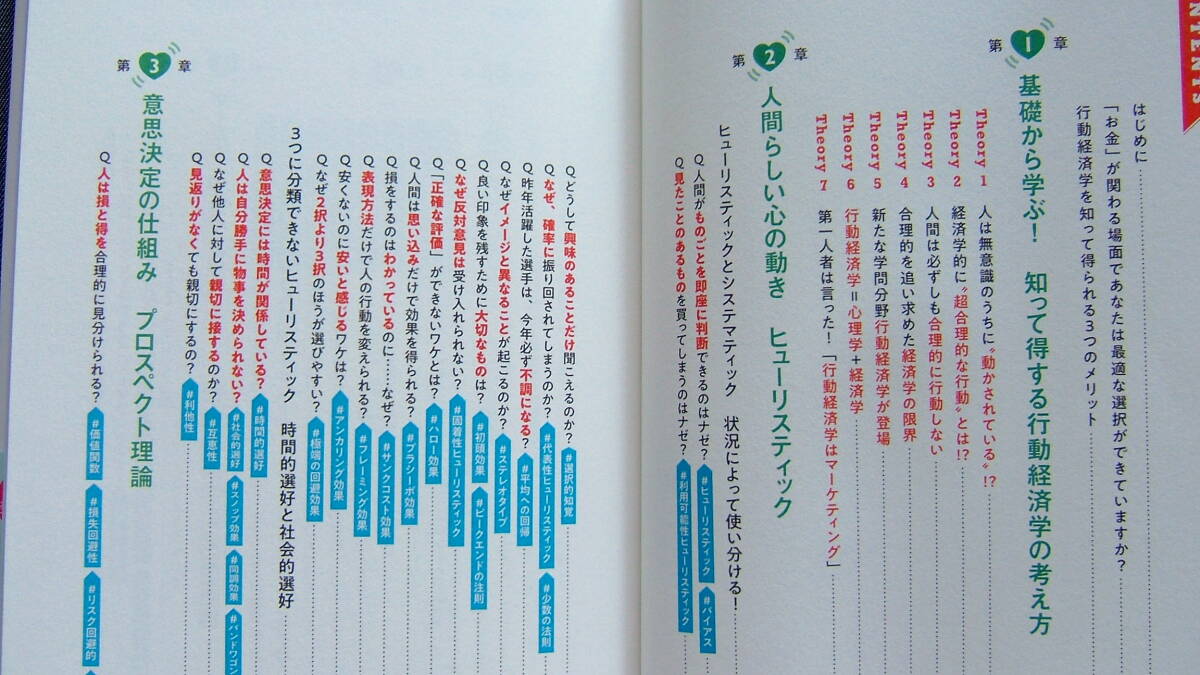 CONTENTS
はじめに
「お金」が関わる場面であなたは最適な選択ができていますか？
行動経済学を知って得られる3つのメリット
第1章 基礎から学ぶ！ 知って得する行動経済学の考え方
Theory 1 人は無意識のうちに“動かされている”!?
Theory 2 経済学的に“超合理的な行動”とは!?
Theory 3 人間は必ずしも合理的に行動しない
Theory 4 合理的を追い求めた経済学の限界
Theory 5 新たな学問分野行動経済学が登場
Theory 6 行動経済学＝心理学＋経済学
Theory 7 第一人者は言った！「行動経済学はマーケティング」
第2章 人間らしい心の動き ヒューリスティック
ヒューリスティックとシステマティック 状況によって使い分ける！
Q.人間がものごとを即座に判断できるのはナゼ？ #ヒューリスティック #バイアス
Q.見たことのあるものを買ってしまうのはナゼ？ #利用可能性ヒューリスティック
Q.どうして興味のあることだけ聞こえるのか？ #選択的知覚
Q.なぜ、確率に振り回されてしまうのか？ #代表性ヒューリスティック #少数の法則
Q.昨年活躍した選手は、今年必ず不調になる？ #平均への回帰
Q.なぜイメージと異なることが起こるのか？ #ステレオタイプ
Q.良い印象を残すために大切なものは？ #初頭効果 #ピークエンドの法則
Q.なぜ反対意見は受け入れられない？ #固着性ヒューリスティック
Q.「正確な評価」ができないワケとは？ #ハロー効果
Q.人間は思い込みだけで効果を得られる？ #プラシーボ効果
Q.損をするのはわかっているのに……なぜ？ #サンクコスト効果
Q.表現方法だけで人の行動を変えられる？ #フレーミング効果
Q.安くないのに安いと感じるワケは？ #アンカリング効果
Q.なぜ2択より3択のほうが選びやすい？ #極端の回避効果
3つに分類できないヒューリスティック 時間的選好と社会的選好
Q.意思決定には時間が関係している？ #時間的選好
Q.人は自分勝手に物事を決められない？ #社会的選好 #スノッブ効果 #同調効果 #バンドワゴン
Q.なぜ他人に対して親切に接するのか？ #互恵性
Q.見返りがなくても親切にするの？ #利他性
第3章 意思決定の仕組み プロスペクト理論
Q.人は損と得を合理的に見分けられる？ #価値関数 #損失回避性 #リスク回避的